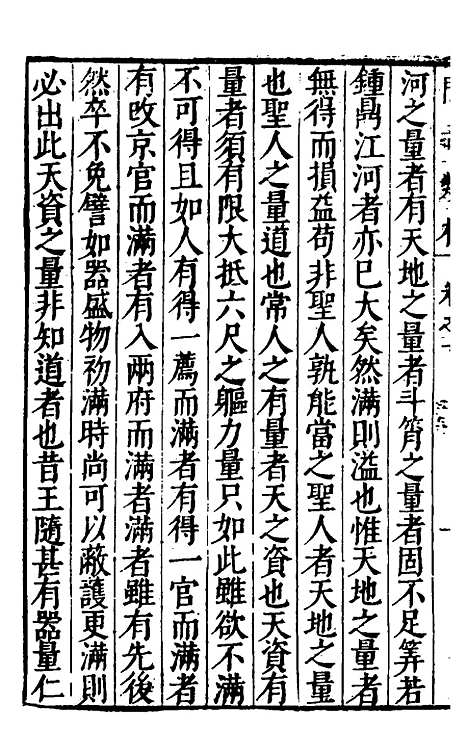 河之量者有天地之量者斗筲之量者固不足筭若
鍾鼎江河者亦巳大矣然滿則溢也惟天地之量者
無得而損益苟非聖人孰能當之聖人者天地之量
也聖人之量道也常人之有量者天之資也天資有
量者須有限大抵六尺之軀力量只如此雖欲不滿
不可得且如人有得一薦而滿者有得一官而滿者
有改京官而滿者有入兩府而滿者滿者雖有先後
然卒不免譬如器盛物初滿時尚可以蔽護更滿則
必出此天資之量非知道者也昔王隨甚有器量仁